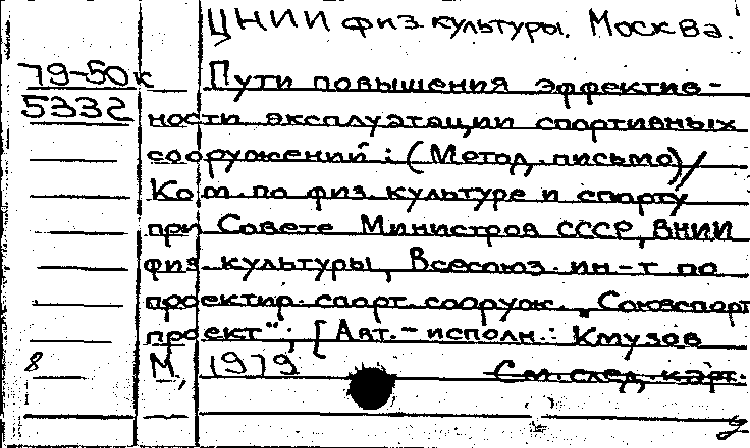 ЦНИИ физ. культуры. Москва.
79-50к Пути повышения эффектив-
5332 ности эксплуатации спортивных
сооружений : (Метод. письмо) /
Ком. по физ. культуре и спорту
при Совете Министров СССР, ВНИИ
физ. культуры, Всесоюз. ин-т по
проектир. спорт. сооруж. „Союзспорт
проект"; [Авт.-исполн.: Кмузов
8 М., 1979
См. след. карт.